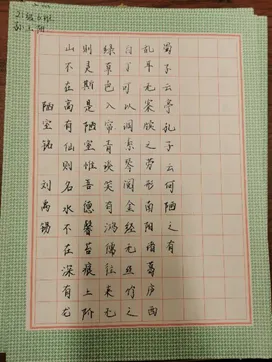 陋室铭 刘禹锡
山不在高有仙则名水不在深有龙
则灵斯是陋室惟吾德馨苔痕上阶
绿草色入帘青谈笑有鸿儒往来无
白丁可以调素琴阅金经无丝竹之
乱耳无案牍之劳形南阳诸葛庐西
蜀子云亭孔子云何陋之有